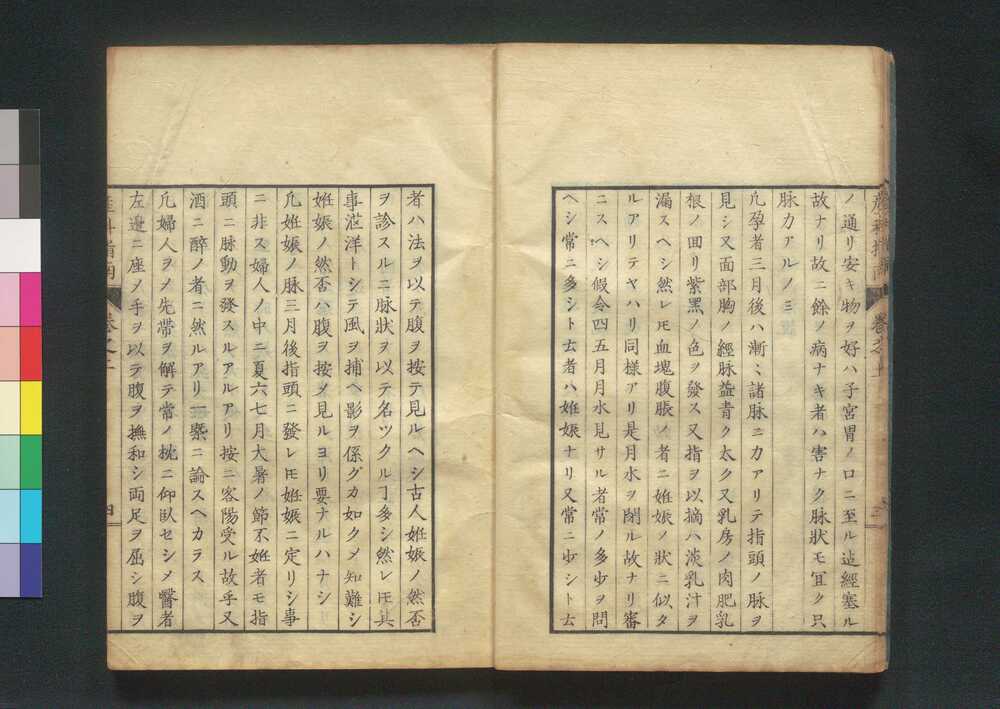 ノ通リ安キ物ヲ好ハ子宮胃ノロニ至ル迠經塞ル
故ナリ故ニ餘ノ病ナキ者ハ害ナク脉狀モ冝ク只
脉力アルノミ
凢孕者三月後ハ漸〻諸脉ニカアリテ指頭ノ脉ヲ
見シ又面部胸ノ經脉益青ク太ク又乳房ノ肉肥乳
根ノ囬リ紫黑ノ色ヲ發ス又指ヲ以摘ハ淡乳汁ヲ
漏スヘシ然レ𪜈血塊腹脹ノ者ニ姙娠ノ狀ニ似タ
ルアリテヤハリ同様アリ是月水ヲ閉ル故ナリ審
ニスヘシ假令四五月月水見サル者常ノ多少ヲ問
ヘシ常ニ多シト云者ハ姙娠ナリ又常ニ少シト云
者ハ法ヲ以テ腹ヲ按テ見ルヘシ古人姙娠ノ然否
ヲ診スルニ脉狀ヲ以テ名ツクルヿ多シ然レ𪜈其
事茫洋トシテ風ヲ捕ヘ影ヲ係グカ如クメ知難シ
姙娠ノ然否ハ腹ヲ按メ見ルヨリ要ナルハナシ
凢姙娠ノ脉三月後指頭ニ發レ𪜈姙娠ニ定リシ事
ニ非ス婦人ノ中ニ夏六七月大暑ノ節不姙者モ指
頭ニ脉動ヲ發スルアルアリ按ニ客陽受ル故乎又
酒ニ醉ノ者ニ然ルアリ一槩ニ論スヘカラス
凢婦人ヲメ先帶ヲ解テ常ノ枕ニ仰臥セシメ醫者
左邉ニ座メ手ヲ以テ腹ヲ撫和シ両足ヲ屈シ腹ヲ
産科指南
卷之上
四